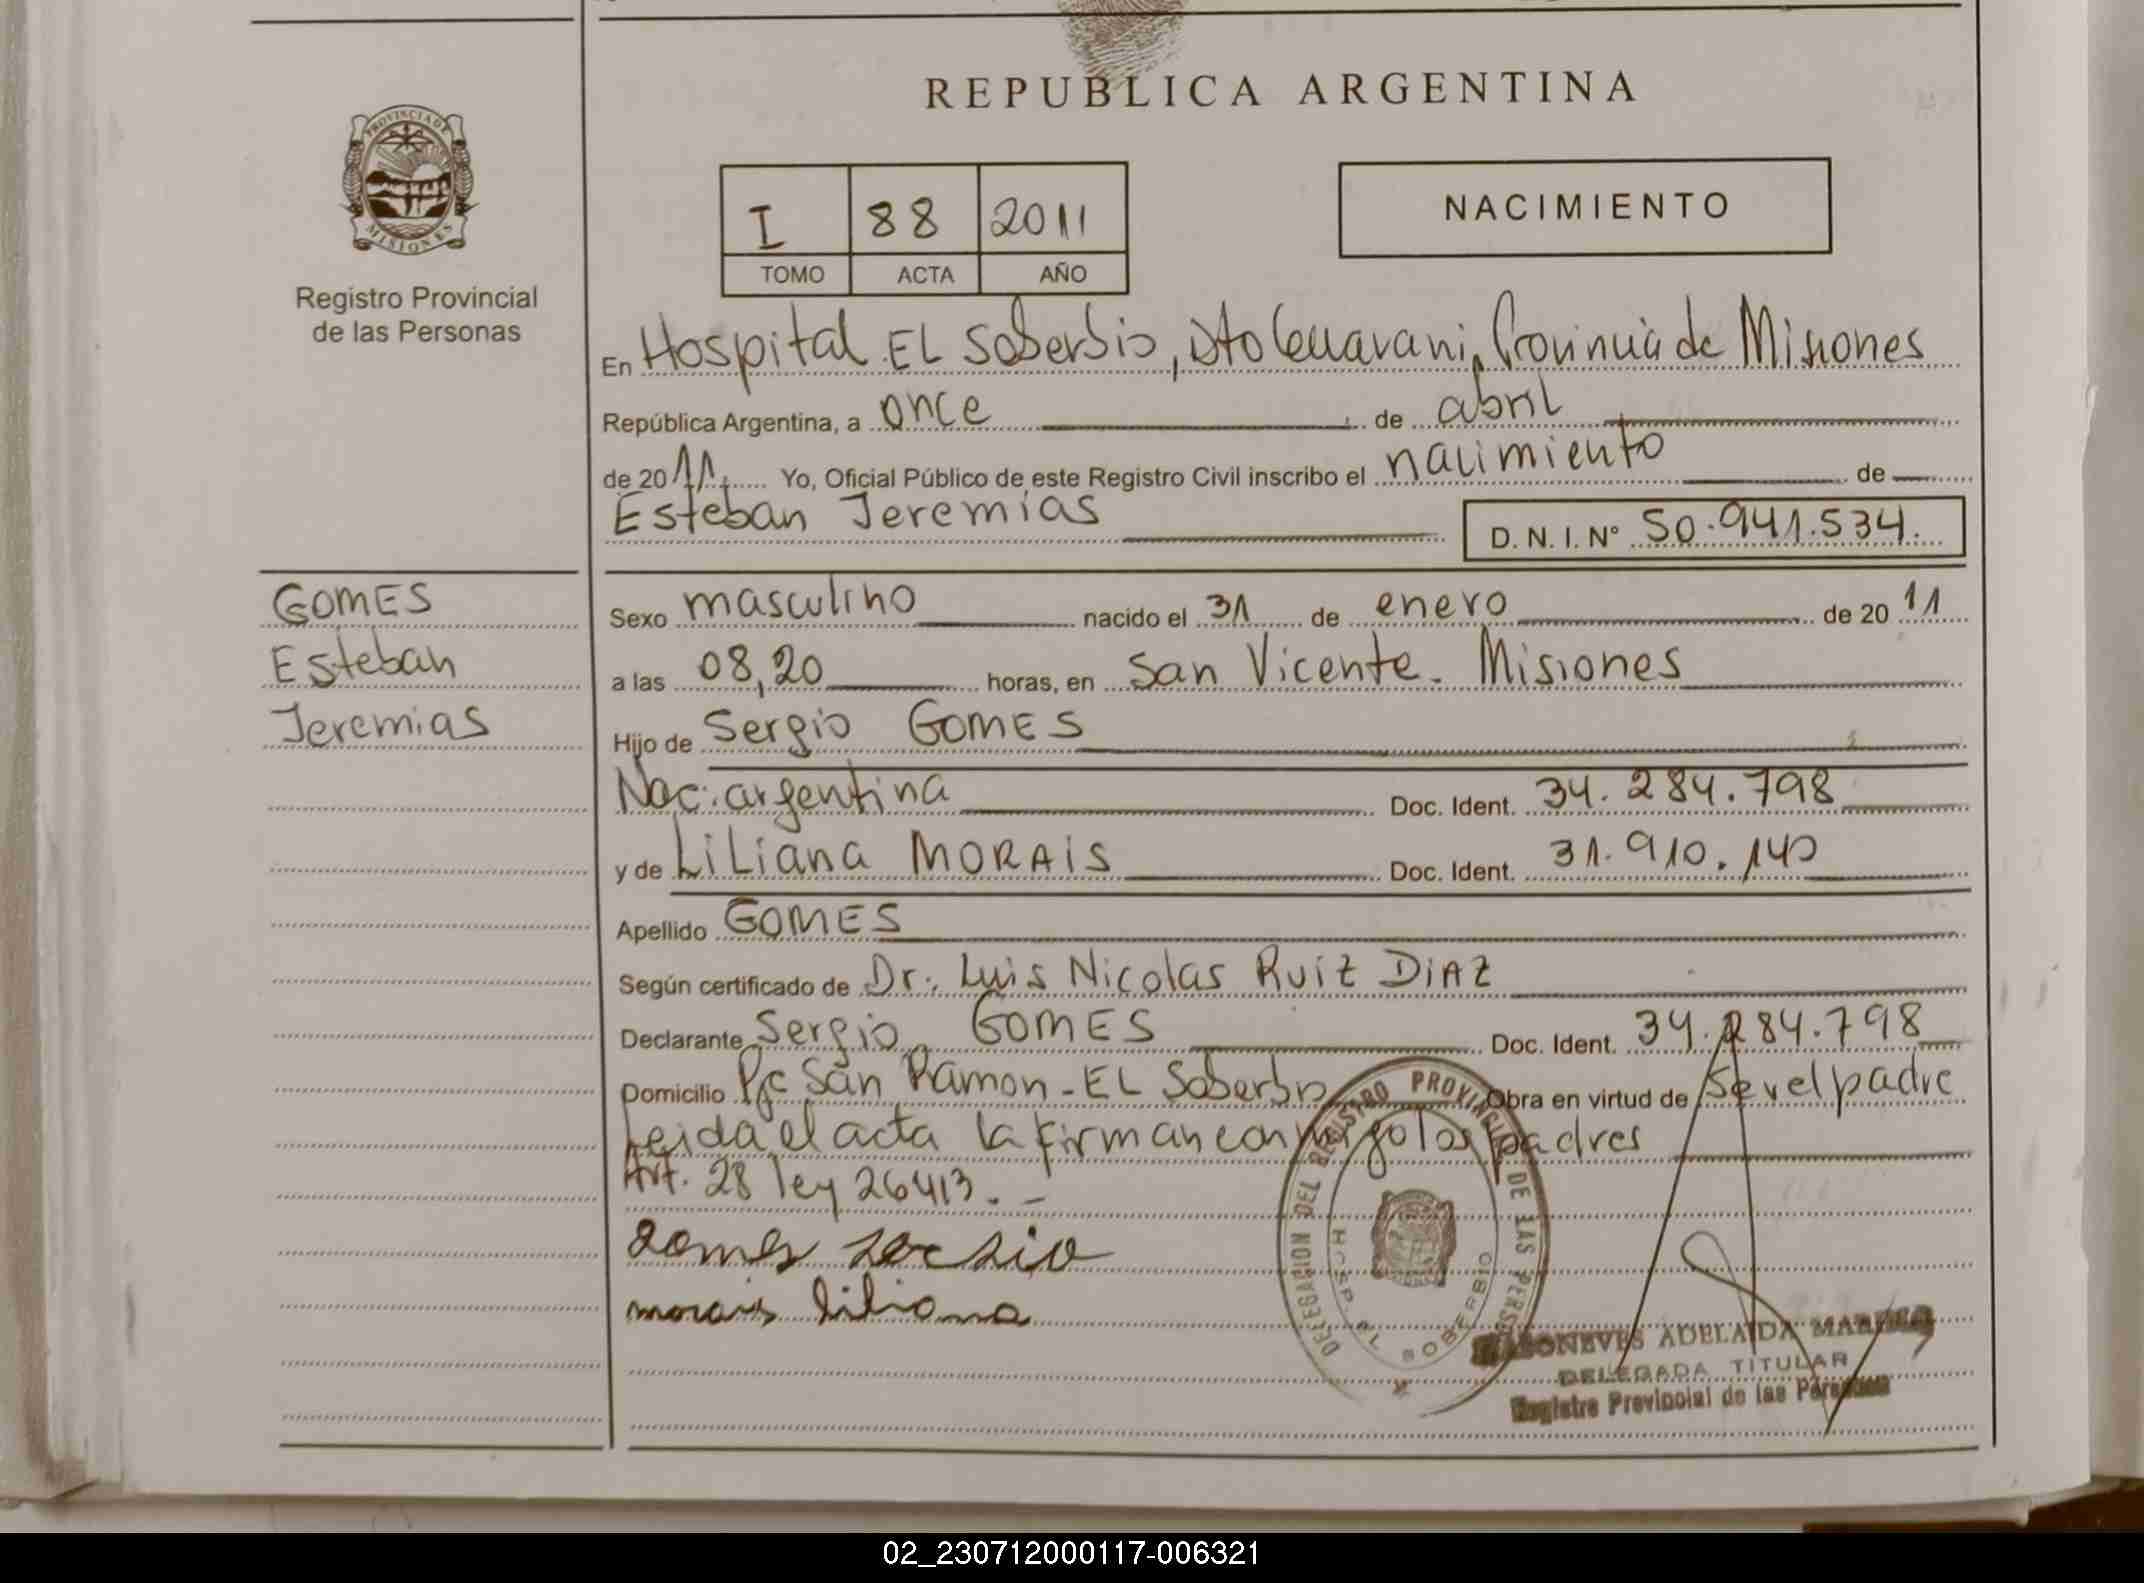 REPUBLICA ARGENTINA
PROVINCIA DE MISIONES
Registro Provincial
de las Personas
I 88 2011
TOMO ACTA AÑO
NACIMIENTO
En Hospital EL Soberbio, Dto Guarani, Provincia de Misiones
República Argentina, a once de abril
de 2011 Yo, Oficial Público de este Registro Civil inscribo el nacimiento de
Esteban Jeremías D. N. I. Nº 50.941.534.
GOMES
Esteban
Jeremias
Sexo masculino nacido el 31 de enero de 2011
a las 08,20 horas, en San Vicente. Misiones
Hijo de Sergio GOMES
Nac: argentina Doc. Ident. 34.284.798
y de LiLiana MORAIS Doc. Ident. 31.910.140
Apellido GOMES
Según certificado de Dr. Luis Nicolas RUIZ DIAZ
Declarante Sergio GOMES Doc. Ident. 34.284.798
Domicilio Pje San Ramon - EL Soberbio Obra en virtud de ser el padre
Leida el acta la firman conmigo los padres
Art. 28 ley 26413. -
gomes sergio
morais liliana
DELEGACION DEL REGISTRO PROVINCIAL DE LAS PERSONAS
HOSP. EL SOBERBIO
ADELAIDA
DELEGADA TITULAR
Registro Provincial de las Personas
02_230712000117-006321